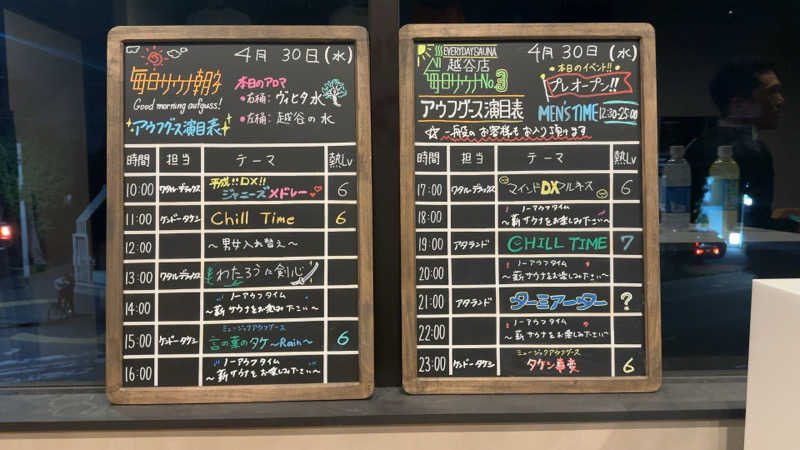 4月 30日(水)
毎日サウナ朝子
Good morning aufguss!
アウフグース演目表
本日のアロマ
・右桶: ヴィヒタ水
・左桶: 越谷の水
時間 担当 テーマ 熱Lv
10:00 ワタルーデラックス 平成!!DX!! ジャニーズメドレー 6
11:00 ケンドータケシ Chill Time 6
12:00 〜男女入れ替え〜
13:00 ワタルーデラックス わたろうに剣心
14:00 ノーアウフタイム
〜薪サウナをお楽しみ下さい〜
15:00 ケンドータケシ ミュージックアウフグース
言の葉のタケ〜Rain〜 6
16:00 ノーアウフタイム
〜薪サウナをお楽しみ下さい〜
EVERYDAY SAUNA
越谷店
毎日サウナNo.3
4月30日(水)
・本日のイベント!!
プレオープン!!
アウフグース演目表
MEN'S TIME 12:30-25:00
☆一般のお客様もお入り頂けます
時間 担当 テーマ 熱Lv
17:00 ワタルーデラックス マインドDXフルネス 6
18:00 ノーアウフタイム
〜薪サウナをお楽しみ下さい〜
19:00 アタランド CHILL TIME 7
20:00 ノーアウフタイム
〜薪サウナをお楽しみ下さい〜
21:00 アタランド ターミアーター ?
22:00 ノーアウフタイム
〜薪サウナをお楽しみ下さい〜
23:00 ケンドータケシ ミュージックアウフグース
6